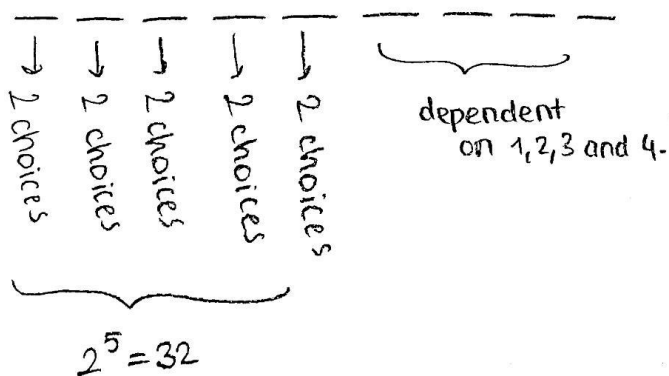 2 choices
2 choices
2 choices
2 choices
2 choices
dependent
on 1,2,3 and 4.
2^5 = 32